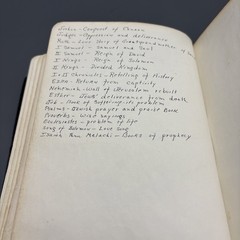 Joshua - Conquest of Canaan
Judges - Oppression and deliverance
Ruth - Love Story of Great grandmother of
I Samuel - Samuel and Saul
II Samuel - Reign of David
I Kings - Reign of Solomon
II Kings - Divided Kingdom
I + II Chronicles - Retelling of History
Ezra - Return from captivity
Nehemiah - Wall of Jerusalem rebuilt
Esther - Jews' deliverance from death
Job - Book of suffering - its problem
Psalms - Jewish prayer and praise Book
Proverbs - Wise sayings
Ecclesiastes - problem of life
Song of Solomon - Love Song
Isaiah thru Malachi - Books of prophecy